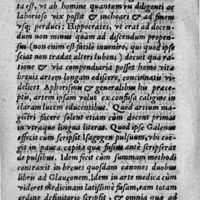 ta est, vt ab homine quantum vis diligenti ac
laborioso vix possit & inchoari & ad finem
vsq; perduci: Hippocrates, vt erat ad docen-
dum non minùs quàm ad discendum propen-
sus (non enim est facilè inuenire, qui quod ipse
sciat non tradat alteri lubens) docuit qua ra-
tione & via compendiaria posset homo vita
breuis artem longam ediscere, concinnatis vi-
delicet Aphorismis & generalibus his præce-
ptis, artem ipsam velut ex confusa caligine in
claram lucem educentibus. Quod artium ma-
gistri facere solent etiam cum docent primas
in vtraque lingua literas. Quod ipse Galenus
fecit cum scripsit Isagogem pulsuum, vbi coë-
git in pauca, quæ fusius ante scripserat
de pulsibus. Idem fecit cùm summam methodi
contraxit in breues quosdam canones duobus
libris ad Glauconem. Idem in arte medica cùm
videret medicinam latissimè fusam, eam totam
ordine definitorio scripsit, & omnia quæ ad